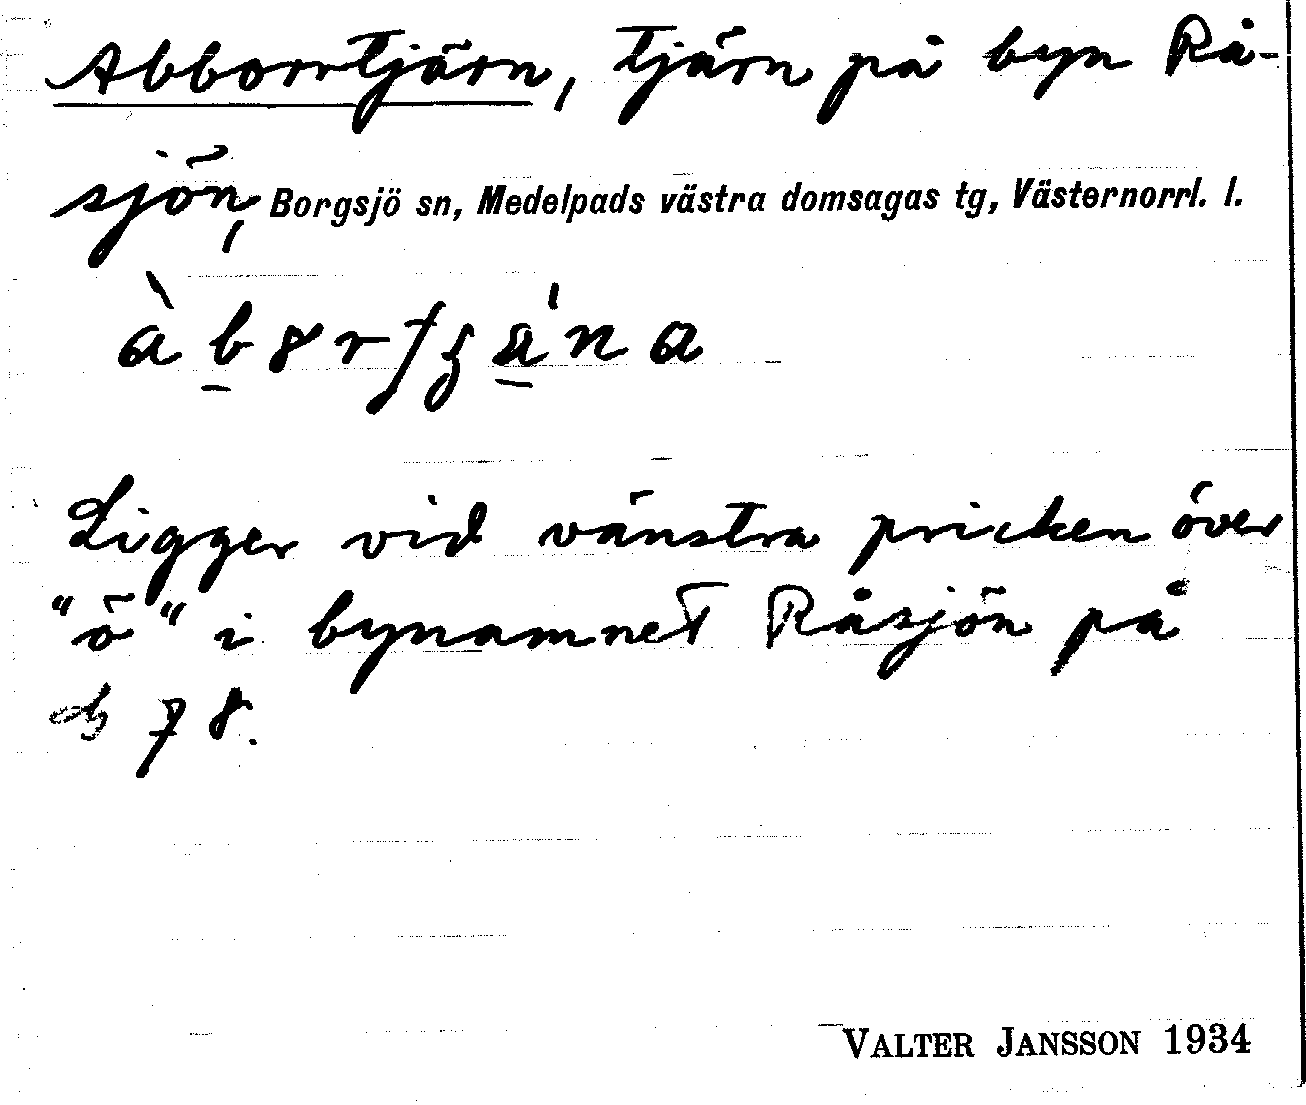 Abborrtjärn, tjärn på byn Rå-
sjön, Borgsjö sn, Medelpads västra domsagas tg, Västernorrl. l.
Ligger vid vänstra pricken över
"ö" i bynamnet Råsjön på
eb 78.
VALTER JANSSON 1934